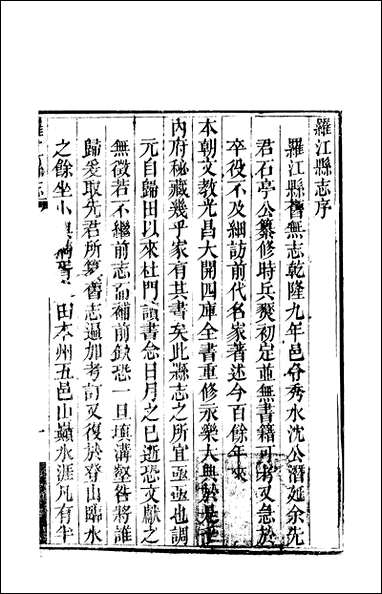 羅江縣志序
羅江縣舊無志乾隆九年邑令秀水沈公潛延余先
君石亭公纂修時兵燹初定並無書籍可考又急於
卒役不及細訪前代名家著述今百餘年來
本朝文教光昌大開四庫全書重修永樂大典於是
內府秘藏幾乎家有其書矣此縣志之所宜亟亟也調
元自歸田以來杜門讀書念日月之已逝恐文獻之
無徵若不繼前志而補前缺恐一旦填溝壑咎將誰
歸爰取先君所纂舊志遍加考訂又復於登山臨水
之餘坐小 田本州五邑山巔水涯凡有半